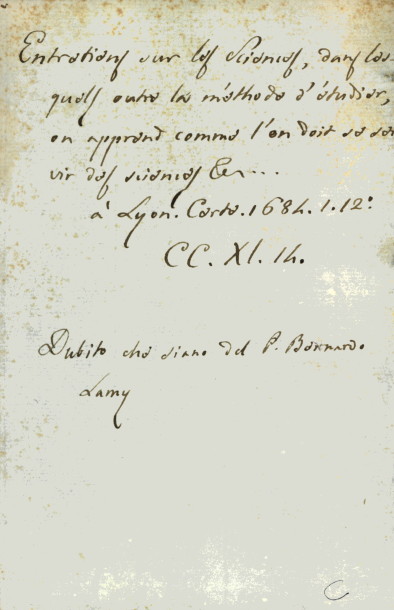 Entretiens sur les Sciences, dans les
quels outre la méthode d'étudier,
on apprend comme l'on doit se ser
vir des sciences &c...
à Lyon. Certe. 1684. 1. 12.°
CC. XI. 14.
Dubito che siano del P. Bernardo
Lamy